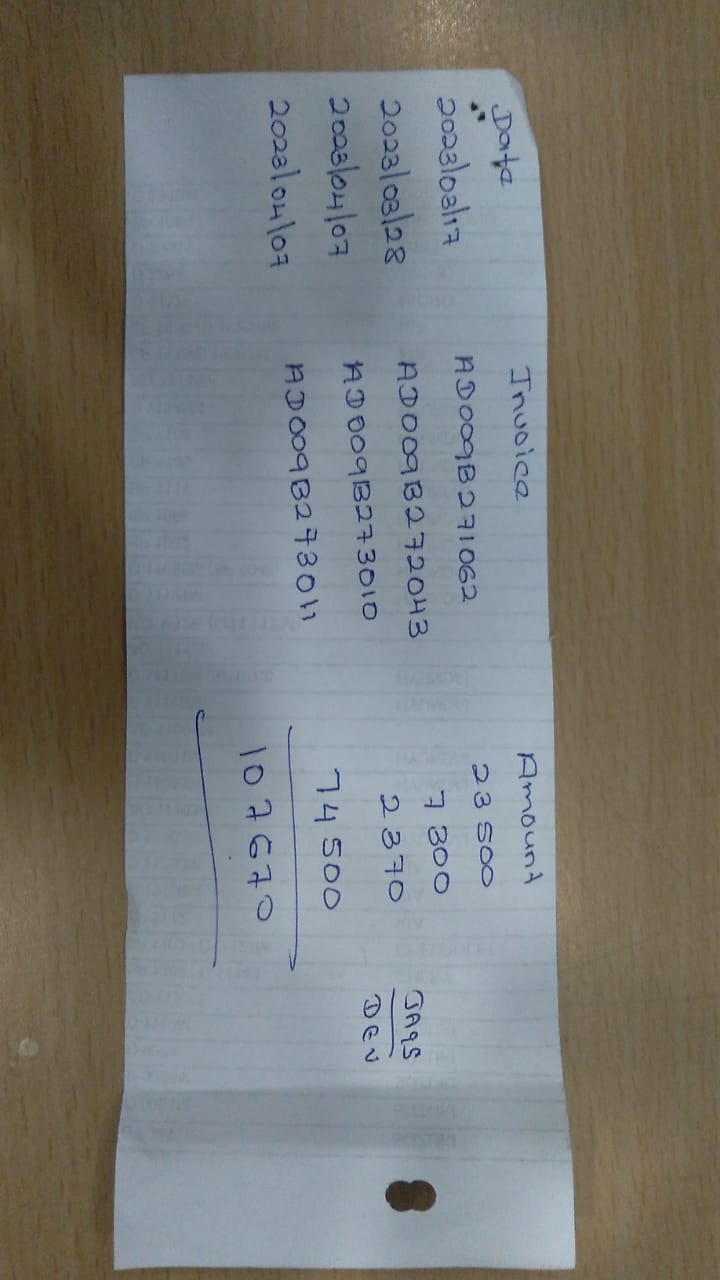 Date Invoice Amount
2023/03/17 AD009B271062 23 500
2023/03/28 AD009B272043 7 300
2023/04/07 AD009B273010 2 370
2023/04/07 AD009B273011 74 500
107670